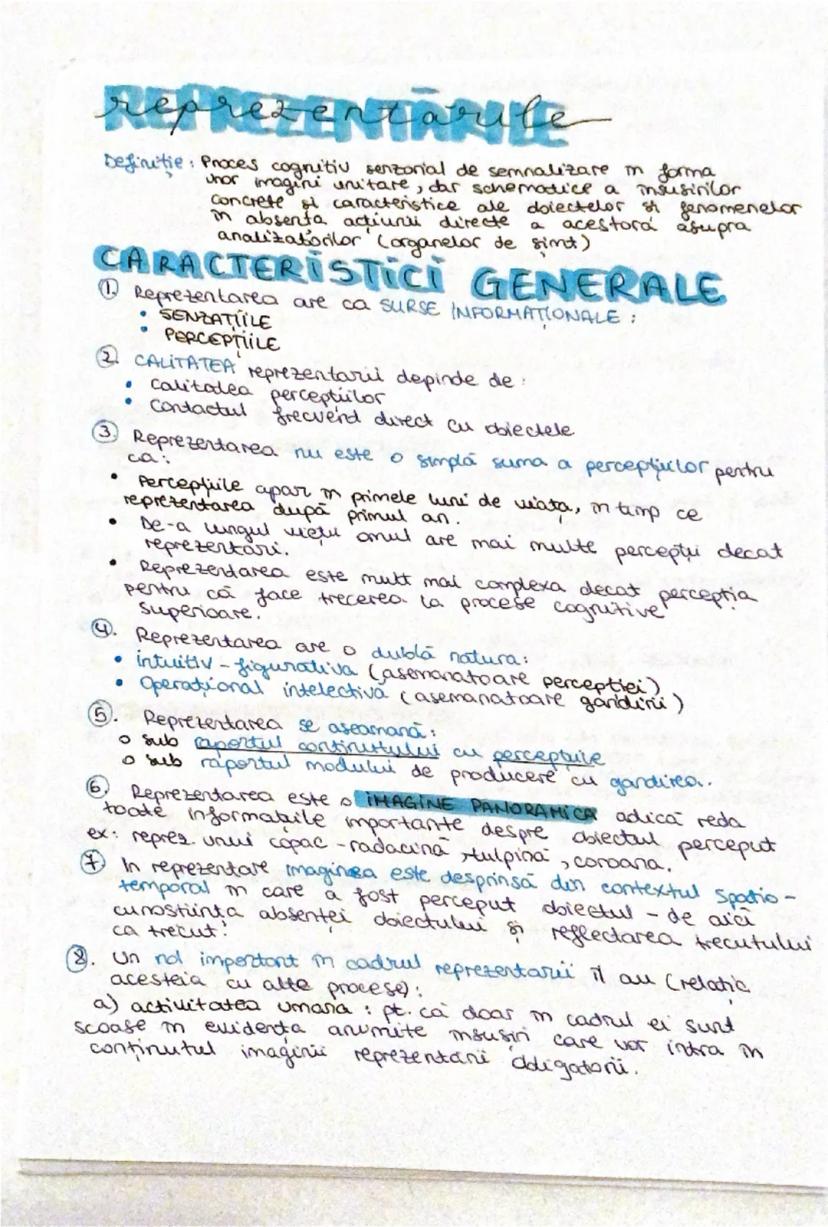 reprezentările
Definiție: Proces cognitiv senzorial de semnalizare în forma
unor imagini unitare, dar schematice a însusirilor
concrete și caracteristice ale obiectelor și fenomenelor
în absența acțiunii directe a acestora asupra
analizatorilor (organelor de simt)
CARACTERISTICI GENERALE
1. Reprezentarea are ca SURSE INFORMAȚIONALE:
• SENZAȚIILE
• PERCEPȚIILE
2. CALITATEA reprezentarii depinde de:
• calitatea percepțiilor
• contactul frecvent direct cu obiectele
3 Reprezentarea nu este o simplă suma a percepțiilor pentru
ca:
• Percepțiile apar în primele luni de viața, în timp ce
reprezentarea după primul an.
• De-a lungul vieții omul are mai multe percepții decat
reprezentări.
• Reprezentarea este mult mai complexa decat percepția
pentru că face trecerea la procese cognitive
superioare.
4. Reprezentarea are o dublă natura:
• intuitiv-figurativa (asemanatoare percepției)
• Operațional intelectivă (asemanatoare gandirii)
5. Reprezentarea se aseamană:
o sub raportul continutului cu percepțiile
o sub raportul modului de producere cu gandirea.
6 Reprezentarea este o IMAGINE PANORAMICA adică reda
toate informațiile importante despre obiectul perceput
ex: reprez. unui copac - radacină, tulpină, coroana.
7 In reprezentare imaginea este desprinsă din contextul spatio-
temporal în care a fost perceput obiectul - de aici
cunostiința absenței obiectului și reflectarea trecutului
ca trecut!
8. Un rol important în cadrul reprezentarii îl au (relația
acesteia cu alte procese):
a) activitatea umana: pt. că doar în cadrul ei sunt
scoase în evidența anumite însusiri care vor intra în
conținutul imaginii reprezentării obligatorii.